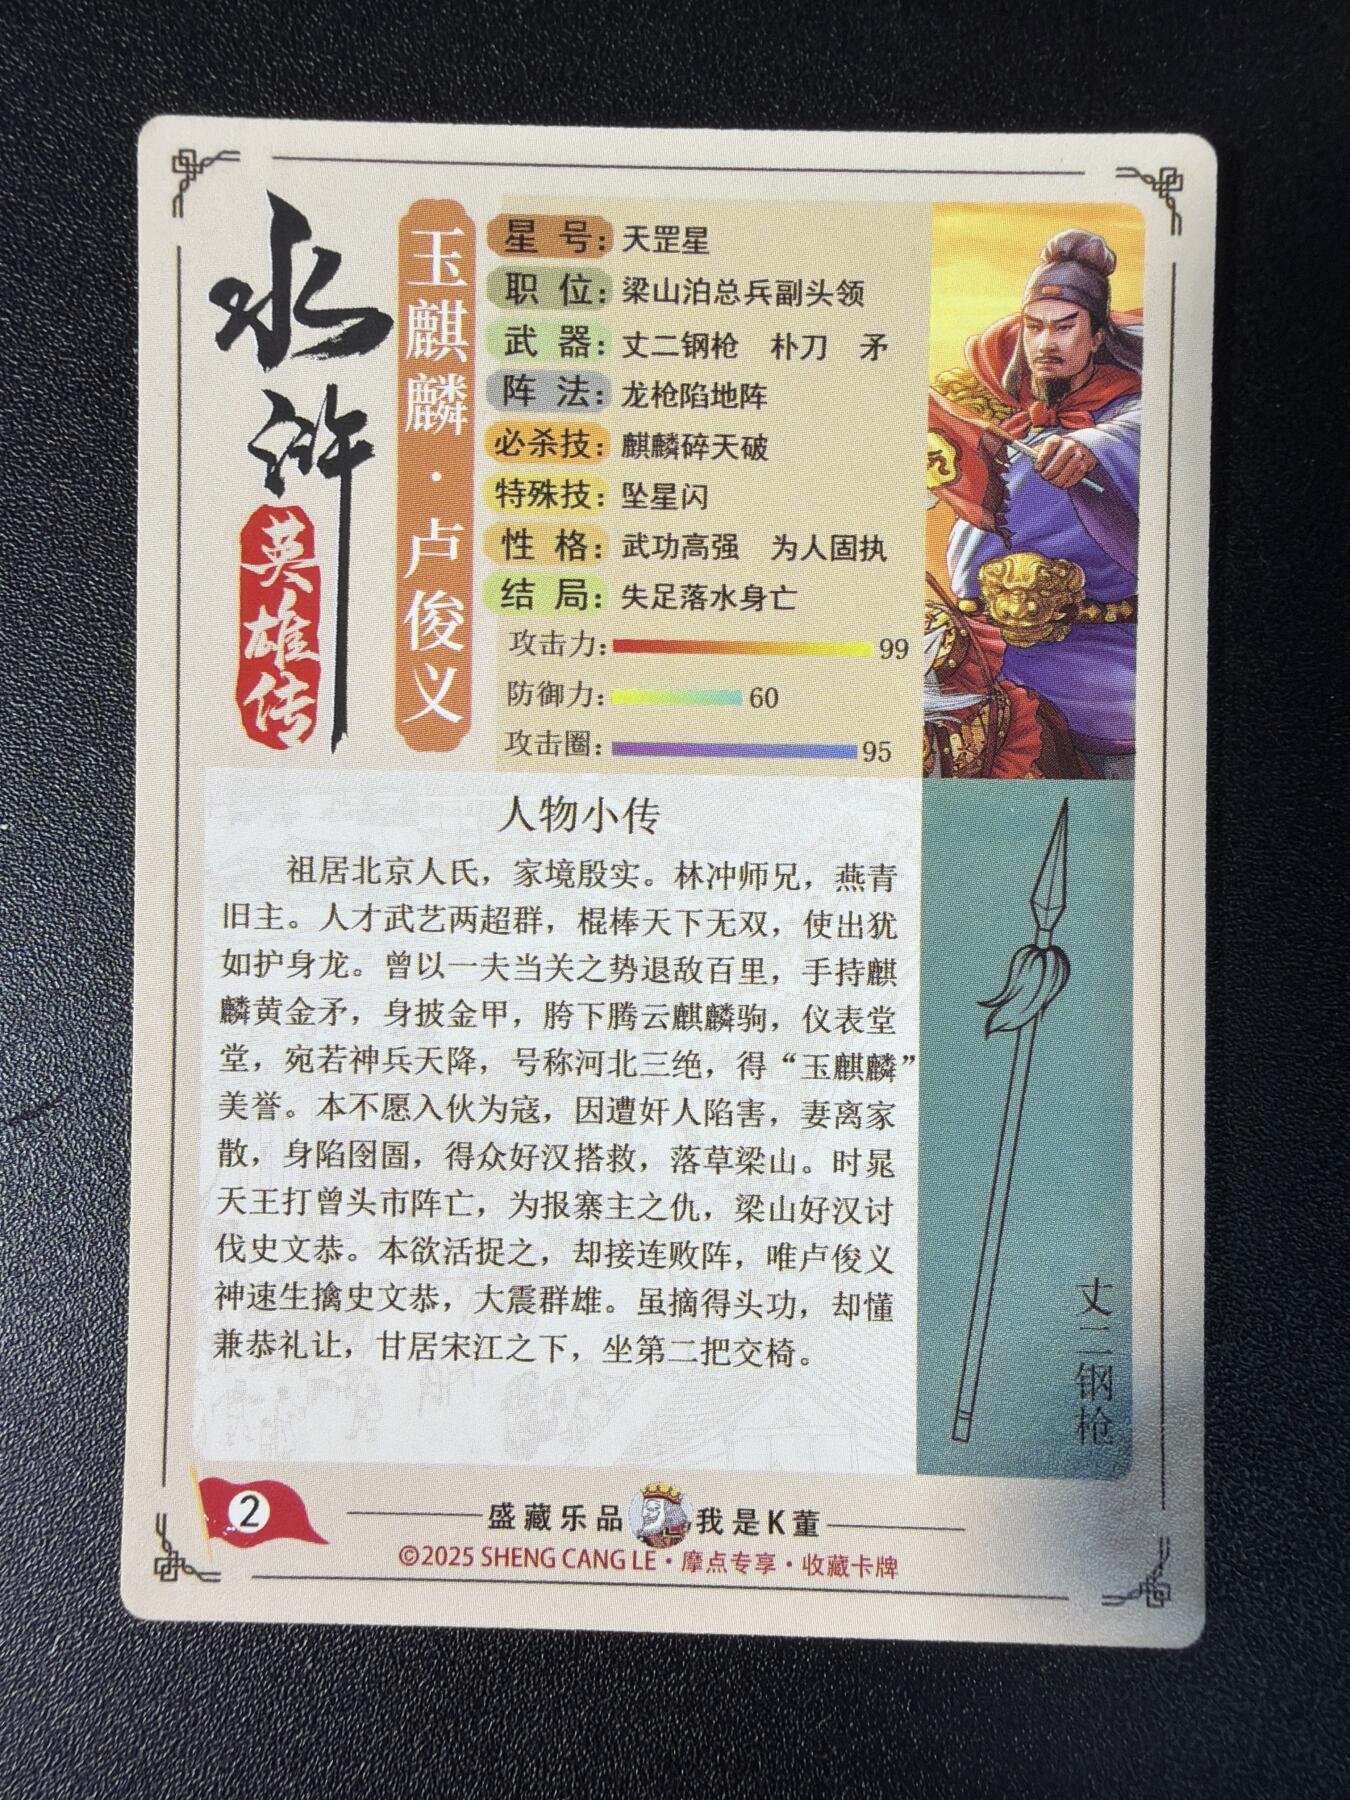 水浒
英雄传
玉麒麟·卢俊义
星号：天罡星
职位：梁山泊总兵副头领
武器：丈二钢枪 朴刀 矛
阵法：龙枪陷地阵
必杀技：麒麟碎天破
特殊技：坠星闪
性格：武功高强 为人固执
结局：失足落水身亡
攻击力：99
防御力：60
攻击圈：95
人物小传
祖居北京人氏，家境殷实。林冲师兄，燕青
旧主。人才武艺两超群，棍棒天下无双，使出犹
如护身龙。曾以一夫当关之势退敌百里，手持麒
麟黄金矛，身披金甲，胯下腾云麒麟驹，仪表堂
堂，宛若神兵天降，号称河北三绝，得“玉麒麟”
美誉。本不愿入伙为寇，因遭奸人陷害，妻离家
散，身陷囹圄，得众好汉搭救，落草梁山。时晁
天王打曾头市阵亡，为报寨主之仇，梁山好汉讨
伐史文恭。本欲活捉之，却接连败阵，唯卢俊义
神速生擒史文恭，大震群雄。虽摘得头功，却懂
兼恭礼让，甘居宋江之下，坐第二把交椅。
丈二钢枪
2
盛藏乐品 我是K董
©2025 SHENG CANG LE·摩点专享·收藏卡牌